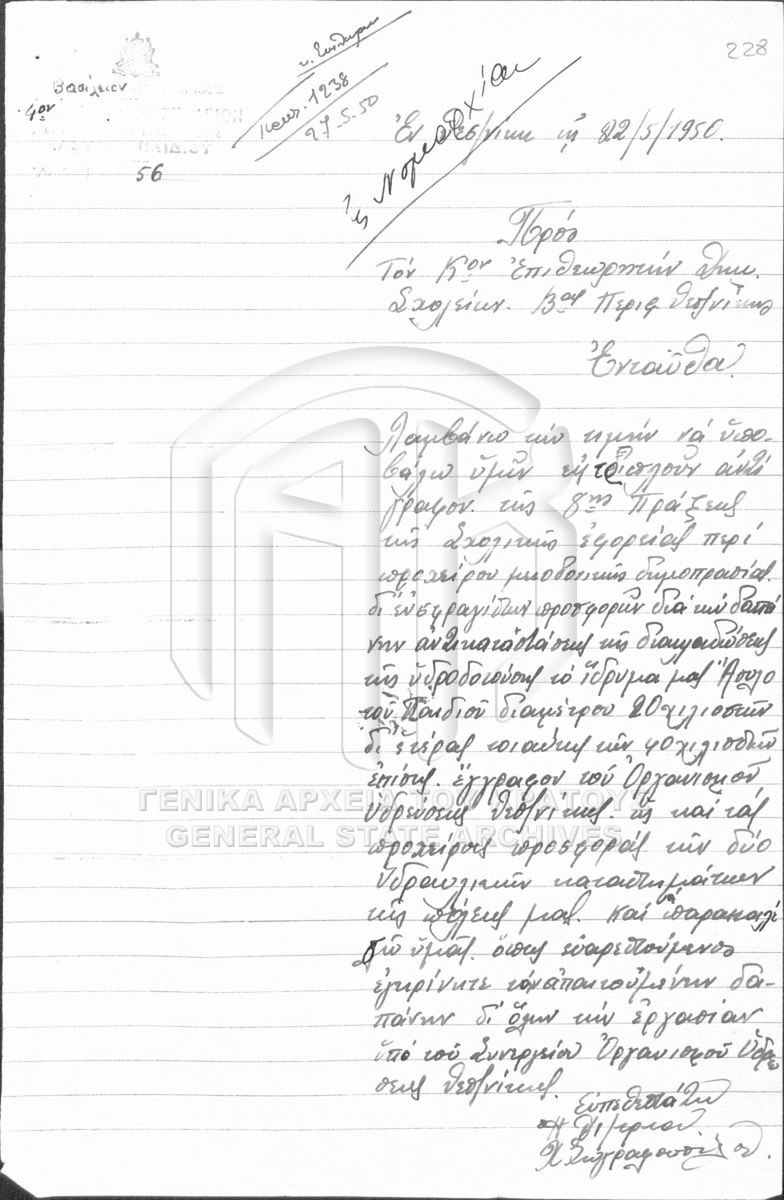 228
Βασίλειον
4ον
56
πρωτ. 1238
27-5-50
Ἐν Θεσ/νίκῃ τῇ 22/5/1950.
Πρός
Τόν Κον Ἐπιθεωρητήν Δημ.
Σχολείων. Βας Περιφ. Θεσ/νίκης
Ἐνταῦθα.
Λαμβάνω τήν τιμήν νά ὑπο-
βάλω ὑμῖν εἰς τριπλοῦν ἀντί
γραφον. τῆς 8ης Πράξεως
τῆς Σχολικῆς ἐφορείας περί
προχείρου μειοδοτικῆς δημοπρασίας
δι' ἐνσφραγίστων προσφορῶν διά τήν δαπά
νην ἀντικαταστάσεως τῆς διακλαδώσεως
τῆς ὑδροδοτούσης τό ἵδρυμά μας Ἄσυλο
τοῦ Παιδιοῦ διαμέτρου 20 χιλιοστῶν
δι' ἑτέρας τοιαύτης τῶν 40 χιλιοστῶν
ἐπίσης. ἔγγραφον τοῦ Ὀργανισμοῦ
Ὑδρεύσεως Θεσ/νίκης. ὡς καί τάς
προχείρους προσφοράς τῶν δύο
Ὑδραυλικῶν καταστημάτων
τῆς πόλεώς μας. Καί νά παρακαλέ
σω ὑμᾶς. ὅπως εὐαρεστούμενος
ἐγκρίνητε τήν ἀπαιτουμένην δα-
πάνην δι' ὅλην τήν ἐργασίαν
ὑπό τοῦ Συνεργείου Ὀργανισμοῦ Ὑδρεύ
σεως Θεσ/νίκης.
Εὐπειθεστάτη
Χ Ζωγραφοπούλου.
ΓΕΝΙΚΑ ΑΡΧΕΙΑ ΤΟΥ ΚΡΑΤΟΥΣ
GENERAL STATE ARCHIVES